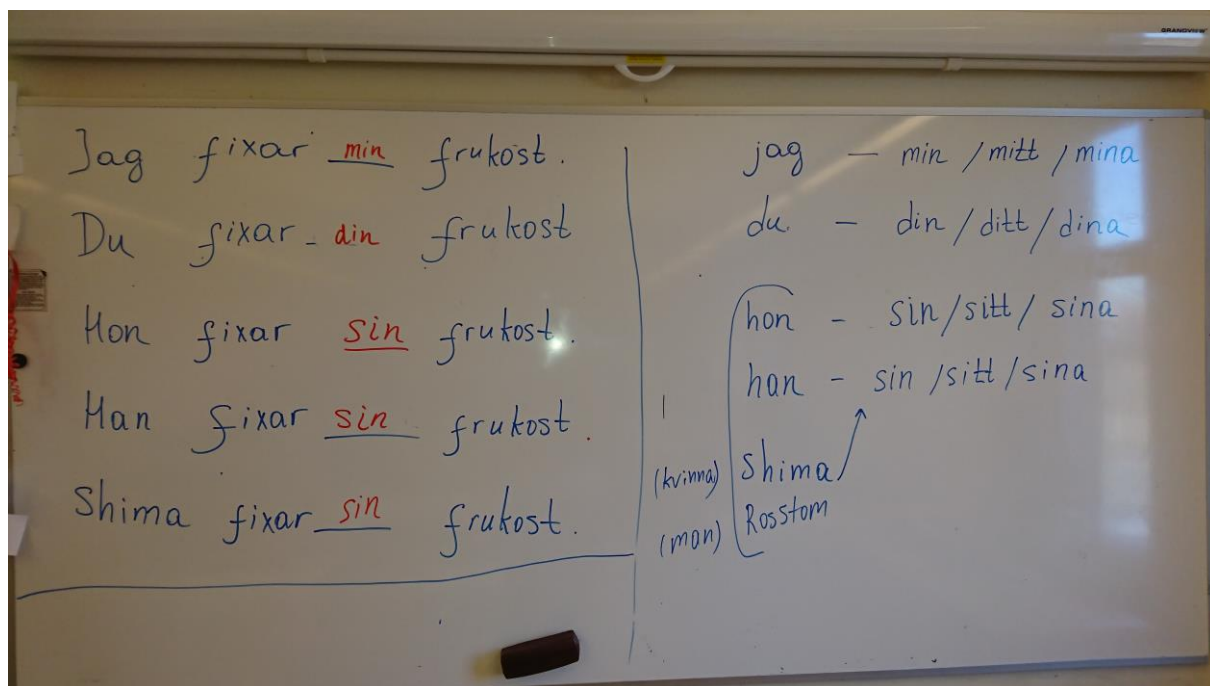 GRANDVIEW
Jag fixar min frukost.
Du fixar din frukost
Hon fixar sin frukost.
Han fixar sin frukost.
Shima fixar sin frukost.
jag – min / mitt / mina
du. – din / ditt / dina
hon – sin / sitt / sina
han – sin / sitt / sina
(kvinna) Shima
(man) Rosstom